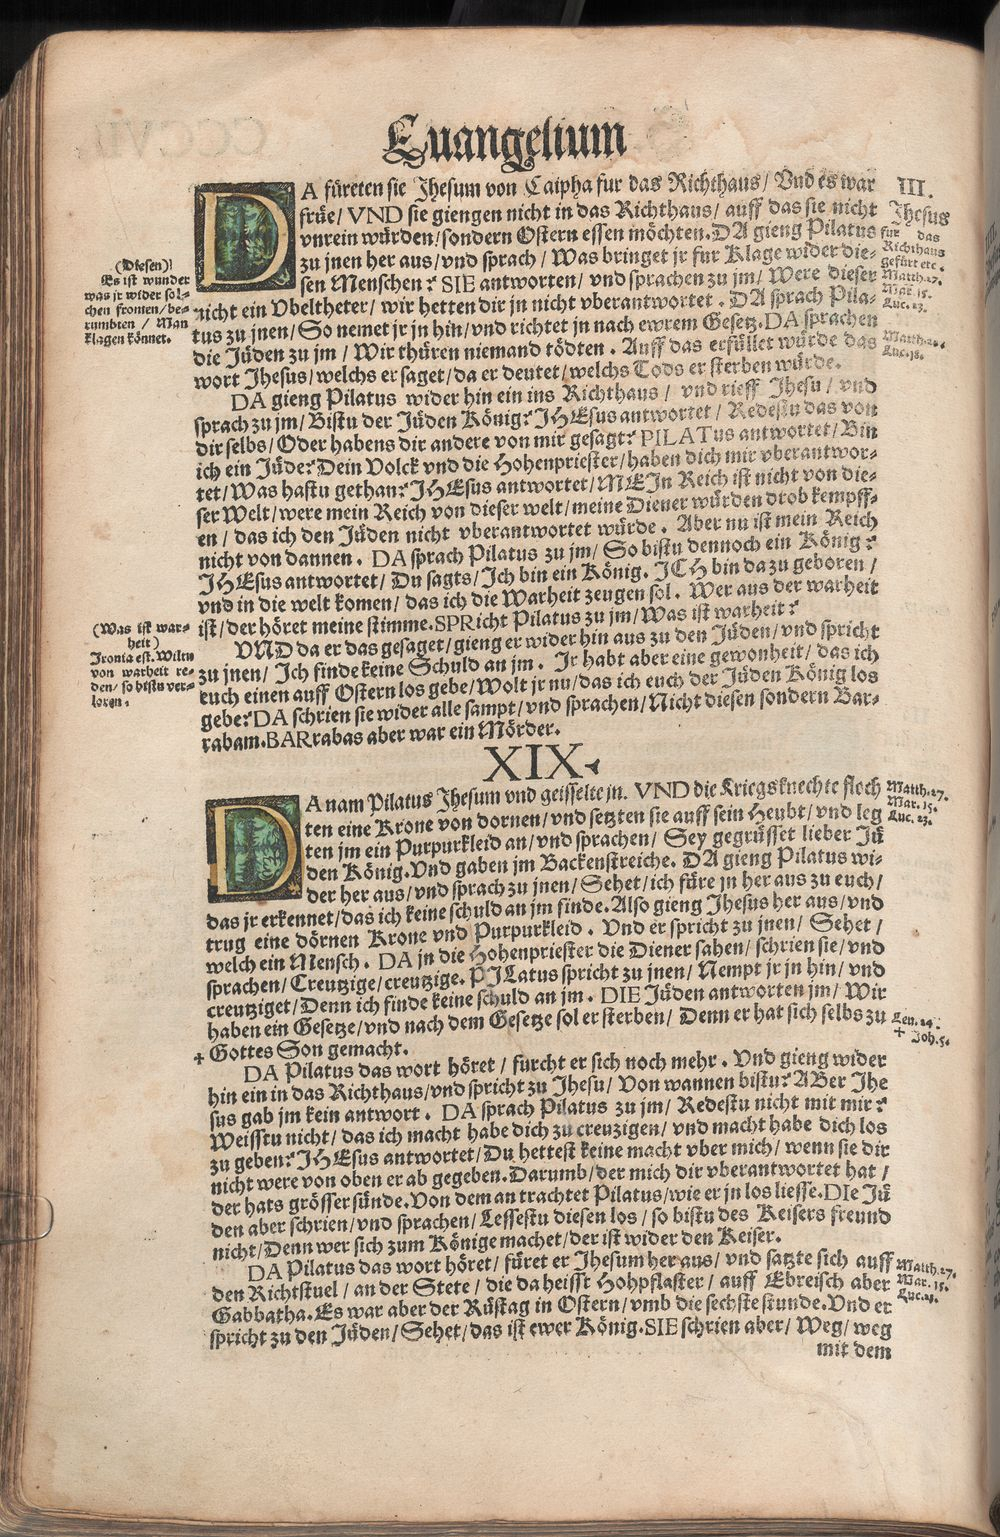 Euangelium
DA füreten sie Jhesum von Caipha fur das Richthaus / Vnd es war
früe / VND sie giengen nicht in das Richthaus / auff das sie nicht
vnrein würden / sondern Ostern essen möchten. DA gieng Pilatus
zu jnen her aus / vnd sprach / Was bringet jr fur Klage wider die-
sen Menschen? SIE antworten / vnd sprachen zu jm / Were dieser
nicht ein Vbeltheter / wir hetten dir jn nicht vberantwortet. DA sprach Pila-
tus zu jnen / So nemet jr jn hin / vnd richtet jn nach ewrem Gesetz. DA sprachen
die Jüden zu jm / Wir thüren niemand tödten. Auff das erfüllet würde das
wort Jhesus / welchs er saget / da er deutet / welchs Tods er sterben würde.
DA gieng Pilatus wider hin ein ins Richthaus / vnd rieff Jhesu / vnd
sprach zu jm / Bistu der Jüden König? JHEsus antwortet / Redestu das von
dir selbs / Oder habens dir andere von mir gesagt? PILATus antwortet / Bin
ich ein Jüde? Dein Volck vnd die Hohenpriester / haben dich mir vberantwor-
tet / Was hastu gethan? JHEsus antwortet / MEJn Reich ist nicht von die-
ser Welt / were mein Reich von dieser welt / meine Diener würden drob kempff-
en / das ich den Jüden nicht vberantwortet würde. Aber nu ist mein Reich
nicht von dannen. DA sprach Pilatus zu jm / So bistu dennoch ein König?
JHEsus antwortet / Du sagts / Jch bin ein König. JCH bin dazu geboren /
vnd in die welt komen / das ich die Warheit zeugen sol. Wer aus der warheit
ist / der höret meine stimme. SPRicht Pilatus zu jm / Was ist warheit?
VND da er das gesaget / gieng er wider hin aus zu den Jüden / vnd spricht
zu jnen / Jch finde keine Schuld an jm. Jr habt aber eine gewonheit / das ich
euch einen auff Ostern los gebe / Wolt jr nu / das ich euch der Jüden König los
gebe? DA schrien sie wider alle sampt / vnd sprachen / Nicht diesen sondern Bar-
rabam. BARrabas aber war ein Mörder.
III.
Jhesus
fur das
Richthaus
gefürt etc.
Matth. 27.
Mar. 15.
Luc. 23.
(Diesen)
Es ist wunder
was jr wider sol-
chen fromen / be-
rumbten / Man
klagen könnet.
(Was ist war-
heit)
Jronia est. Wiltu
von warheit re-
den / so bistu ver-
loren.
XIX.
DA nam Pilatus Jhesum vnd geisselte jn. VND die Kriegsknechte floch
ten eine Krone von dornen / vnd setzten sie auff sein Heubt / vnd leg
ten jm ein Purpurkleid an / vnd sprachen / Sey gegrüsset lieber Jü
den König. Vnd gaben jm Backenstreiche. DA gieng Pilatus wi-
der her aus / vnd sprach zu jnen / Sehet / ich füre jn her aus zu euch /
das jr erkennet / das ich keine schuld an jm finde. Also gieng Jhesus her aus / vnd
trug eine dörnen Krone vnd Purpurkleid. Vnd er spricht zu jnen / Sehet /
welch ein Mensch. DA jn die Hohenpriester die Diener sahen / schrien sie / vnd
sprachen / Creutzige / creutzige. PJLatus spricht zu jnen / Nempt jr jn hin / vnd
creutziget / Denn ich finde keine schuld an jm. DIE Jüden antworten jm / Wir
haben ein Gesetze / vnd nach dem Gesetze sol er sterben / Denn er hat sich selbs zu
+ Gottes Son gemacht.
DA Pilatus das wort höret / furcht er sich noch mehr. Vnd gieng wider
hin ein in das Richthaus / vnd spricht zu Jhesu / Von wannen bistu? ABer Jhe
sus gab jm kein antwort. DA sprach Pilatus zu jm / Redestu nicht mit mir?
Weisstu nicht / das ich macht habe dich zu creuzigen / vnd macht habe dich los
zu geben? JHEsus antwortet / Du hettest keine macht vber mich / wenn sie dir
nicht were von oben er ab gegeben. Darumb / der mich dir vberantwortet hat /
der hats grösser sünde. Von dem an trachtet Pilatus / wie er jn los liesse. DIe Jü
den aber schrien / vnd sprachen / Lessestu diesen los / so bistu des Keisers freund
nicht / Denn wer sich zum Könige machet / der ist wider den Keiser.
DA Pilatus das wort höret / füret er Jhesum her aus / vnd satzte sich auff
den Richtstuel / an der Stete / die da heisst Hohpflaster / auff Ebreisch aber
Gabbatha. Es war aber der Rüstag in Ostern / vmb die sechste stunde. Vnd er
spricht zu den Jüden / Sehet / das ist ewer König. SIE schrien aber / Weg / weg
mit dem
Matth. 27.
Mar. 15.
Luc. 23.
Leu. 24.
+ Joh. 5.
Matth. 27.
Mar. 15.